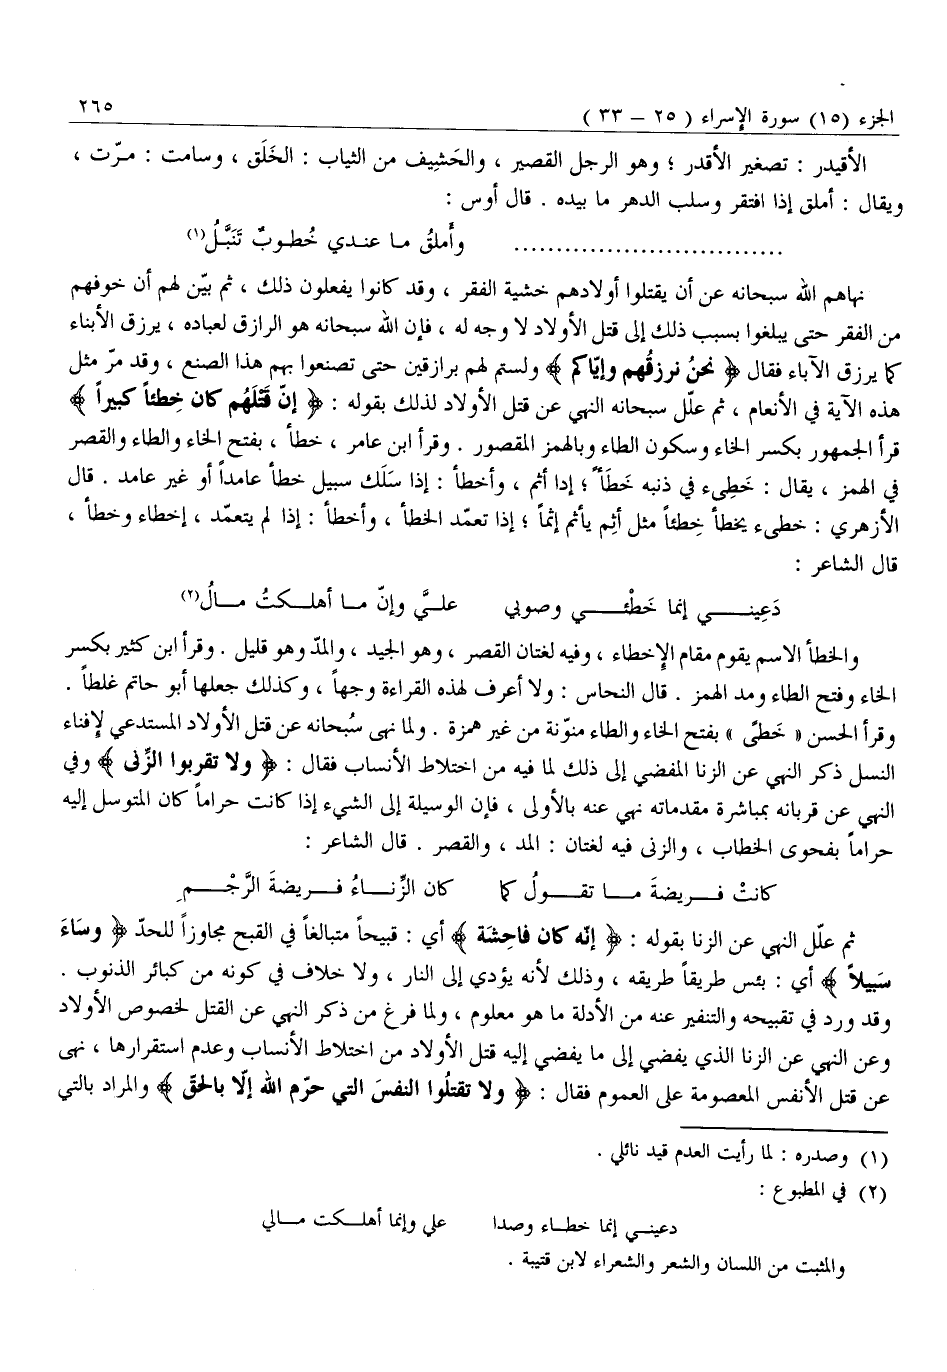 الجزء (١٥) سورة الإسراء ( ٢٥ – ٣٣ ) ٢٦٥
الأقيدر : تصغير الأقدر ؛ وهو الرجل القصير ، والحَشِيف من الثياب : الخَلَق ، وسامت : مرّت ،
ويقال : أملق إذا افتقر وسلب الدهر ما بيده . قال أوس :
................................ وأَملقُ ما عندي خُطوبٌ تَنَبَّلُ(١)
نهاهم الله سبحانه عن أن يقتلوا أولادهم خشية الفقر ، وقد كانوا يفعلون ذلك ، ثم بيّن لهم أن خوفهم
من الفقر حتى يبلغوا بسبب ذلك إلى قتل الأولاد لا وجه له ، فإن الله سبحانه هو الرازق لعباده ، يرزق الأبناء
كما يرزق الآباء فقال ﴿ نحنُ نرزقُهم وإيّاكم ﴾ ولستم لهم برازقين حتى تصنعوا بهم هذا الصنع ، وقد مرّ مثل
هذه الآية في الأنعام ، ثم علّل سبحانه النهي عن قتل الأولاد لذلك بقوله : ﴿ إنّ قَتْلَهُم كان خِطئاً كبيراً ﴾
قرأ الجمهور بكسر الخاء وسكون الطاء وبالهمز المقصور . وقرأ ابن عامر ، خطأ ، بفتح الخاء والطاء والقصر
في الهمز ، يقال : خَطِىء في ذنبه خَطَأً ؛ إذا أثم ، وأخطأ : إذا سَلَك سبيل خطأ عامداً أو غير عامد . قال
الأزهري : خطىء يخطأ خِطئاً مثل أثِم يأثم إثماً ؛ إذا تعمّد الخطأ ، وأخطأ : إذا لم يتعمّد ، إخطاء وخطأ ،
قال الشاعر :
دَعِينـــي إنما خَطْئـــي وصوبي علـيَّ وإنّ مـا أهلـكتُ مـالُ(٢)
والخطأ الاسم يقوم مقام الإخطاء ، وفيه لغتان القصر ، وهو الجيد ، والمدّ وهو قليل . وقرأ ابن كثير بكسر
الخاء وفتح الطاء ومد الهمز . قال النحاس : ولا أعرف لهذه القراءة وجهاً ، وكذلك جعلها أبو حاتم غلطاً .
وقرأ الحسن « خَطًى » بفتح الخاء والطاء منوّنة من غير همزة . ولما نهى سُبحانه عن قتل الأولاد المستدعي لإفناء
النسل ذكر النهي عن الزنا المفضي إلى ذلك لما فيه من اختلاط الأنساب فقال : ﴿ ولا تقربوا الزِّنى ﴾ وفي
النهي عن قربانه بمباشرة مقدماته نهي عنه بالأولى ، فإن الوسيلة إلى الشيء إذا كانت حراماً كان المتوسل إليه
حراماً بفحوى الخطاب ، والزنى فيه لغتان : المد ، والقصر . قال الشاعر :
كانتْ فـــريضةَ مـــا تقـــولُ كما كان الزِّنـــاءُ فـــريضةَ الرَّجْـــمِ
ثم علّل النهي عن الزنا بقوله : ﴿ إنّه كان فاحِشة ﴾ أي : قبيحاً متبالغاً في القبح مجاوزاً للحدّ ﴿ وسَاءَ
سَبيلاً ﴾ أي : بئس طريقاً طريقه ، وذلك لأنه يؤدي إلى النار ، ولا خلاف في كونه من كبائر الذنوب .
وقد ورد في تقبيحه والتنفير عنه من الأدلة ما هو معلوم ، ولما فرغ من ذكر النهي عن القتل لخصوص الأولاد
وعن النهي عن الزنا الذي يفضي إلى ما يفضي إليه قتل الأولاد من اختلاط الأنساب وعدم استقرارها ، نهى
عن قتل الأنفس المعصومة على العموم فقال : ﴿ ولا تقتلُوا النفسَ التي حرّم الله إلّا بالحقّ ﴾ والمراد بالتي
(١) وصدره : لما رأيت العدم قيد نائلي .
(٢) في المطبوع :
دعينـــي إنما خطـاء وصدا علي وإنما أهلـكت مـالي
والمثبت من اللسان والشعر والشعراء لابن قتيبة .